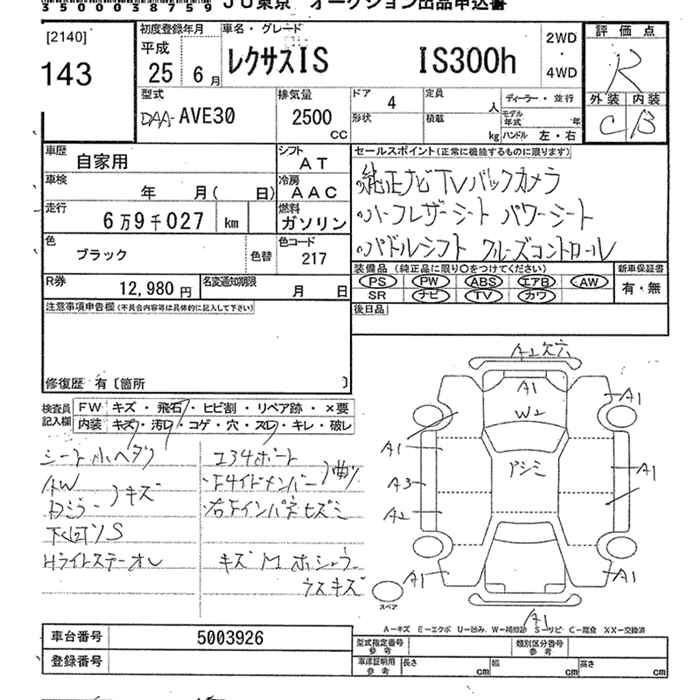 35000038759 JU東京 オークション出品申込書
[2140]
143
初度登録年月
平成
25 6月
車名・グレード
レクサスIS IS300h
2WD
・
4WD
評価点
R
外装 内装
C B
型式
DAA-AVE30
排気量
2500
CC
ドア 4
形状
定員 人
積載 kg
ディーラー・並行
モデル年式 年
ハンドル 左・右
車歴
自家用
シフト
AT
車検
年 月( 日)
冷房
AAC
走行
6万9千027 km
燃料
ガソリン
色
ブラック
色替
色コード
217
R券
12,980円
名変通知期限
月 日
セールスポイント(正常に機能するものに限ります)
・純正ナビTVバックカメラ
・ハーフレザーシート パワーシート
・パドルシフト クルーズコントロール
装備品 (純正品に限り○をつけてください)
PS PW ABS エアB AW
SR ナビ TV カワ
新車保証書
有・無
後日品
注意事項申告欄(不具合内容等は具体的に記入して下さい)
修復歴 有〔箇所 〕
検査員記入欄
FW キズ・飛石・ヒビ割・リペア跡・×要
内装 キズ・汚れ・コゲ・穴・スレ・キレ・破レ
シート小ヘタリ
AW
キズ
下回りS
キズ
ウスキズ
A2
A1
W2
A1
A1
A3
A2
A1
A1
A1
A1
スペア
A-キズ E-エクボ U-凹み W-補修跡 S-サビ C-腐食 XX-交換済
車台番号 5003926
登録番号
型式指定番号 参考
類別区分番号 参考
車庫証明用 参考
長さ cm
幅 cm
高さ cm